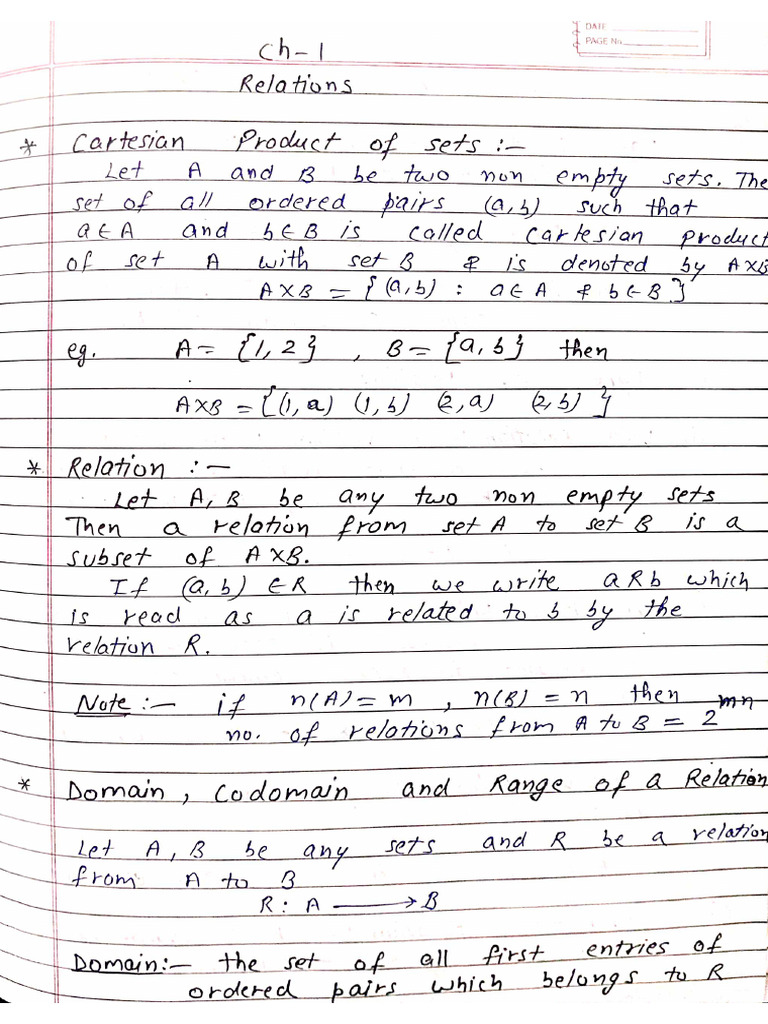 DATE
PAGE No.
Ch-1
Relations
* Cartesian Product of sets :-
Let A and B be two non empty sets. The
set of all ordered pairs (a,b) such that
a∈A and b∈B is called cartesian product
of set A with set B & is denoted by A×B
A×B = {(a,b) : a∈A & b∈B}
eg. A = {1,2} , B = {a,b} then
A×B = {(1,a) (1,b) (2,a) (2,b)}
* Relation :-
Let A, B be any two non empty sets
Then a relation from set A to set B is a
subset of A×B.
If (a,b) ∈R then we write aRb which
is read as a is related to b by the
relation R.
Note :- if n(A) = m , n(B) = n then
no. of relations from A to B = 2^mn
* Domain, Codomain and Range of a Relation
Let A, B be any sets and R be a relation
from A to B
R : A ⟶ B
Domain:- the set of all first entries of
ordered pairs which belongs to R